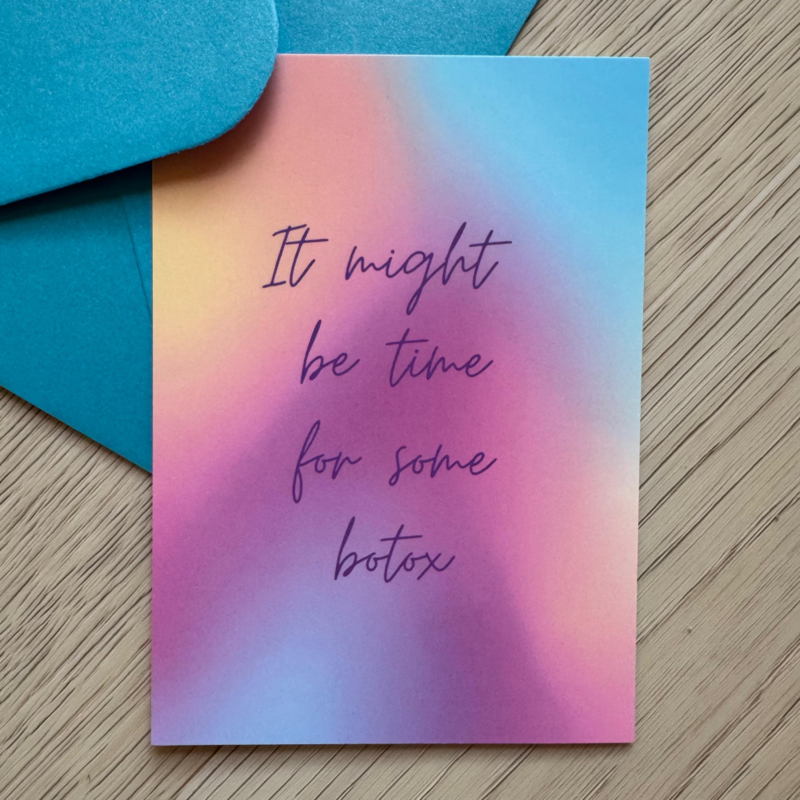 It might
be time
for some
botox